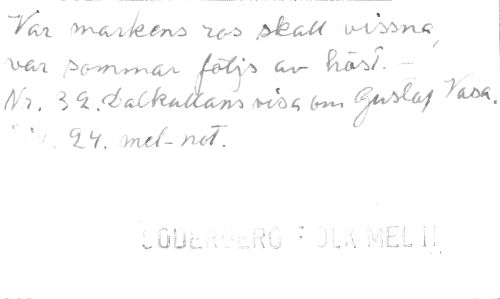 Var markens ros skall vissna,
var sommar följs av höst. –
Nr. 39. Dalkullans visa om Gustaf Vasa.
24. mel-not.
SÖDERBERG FOLKMEL II